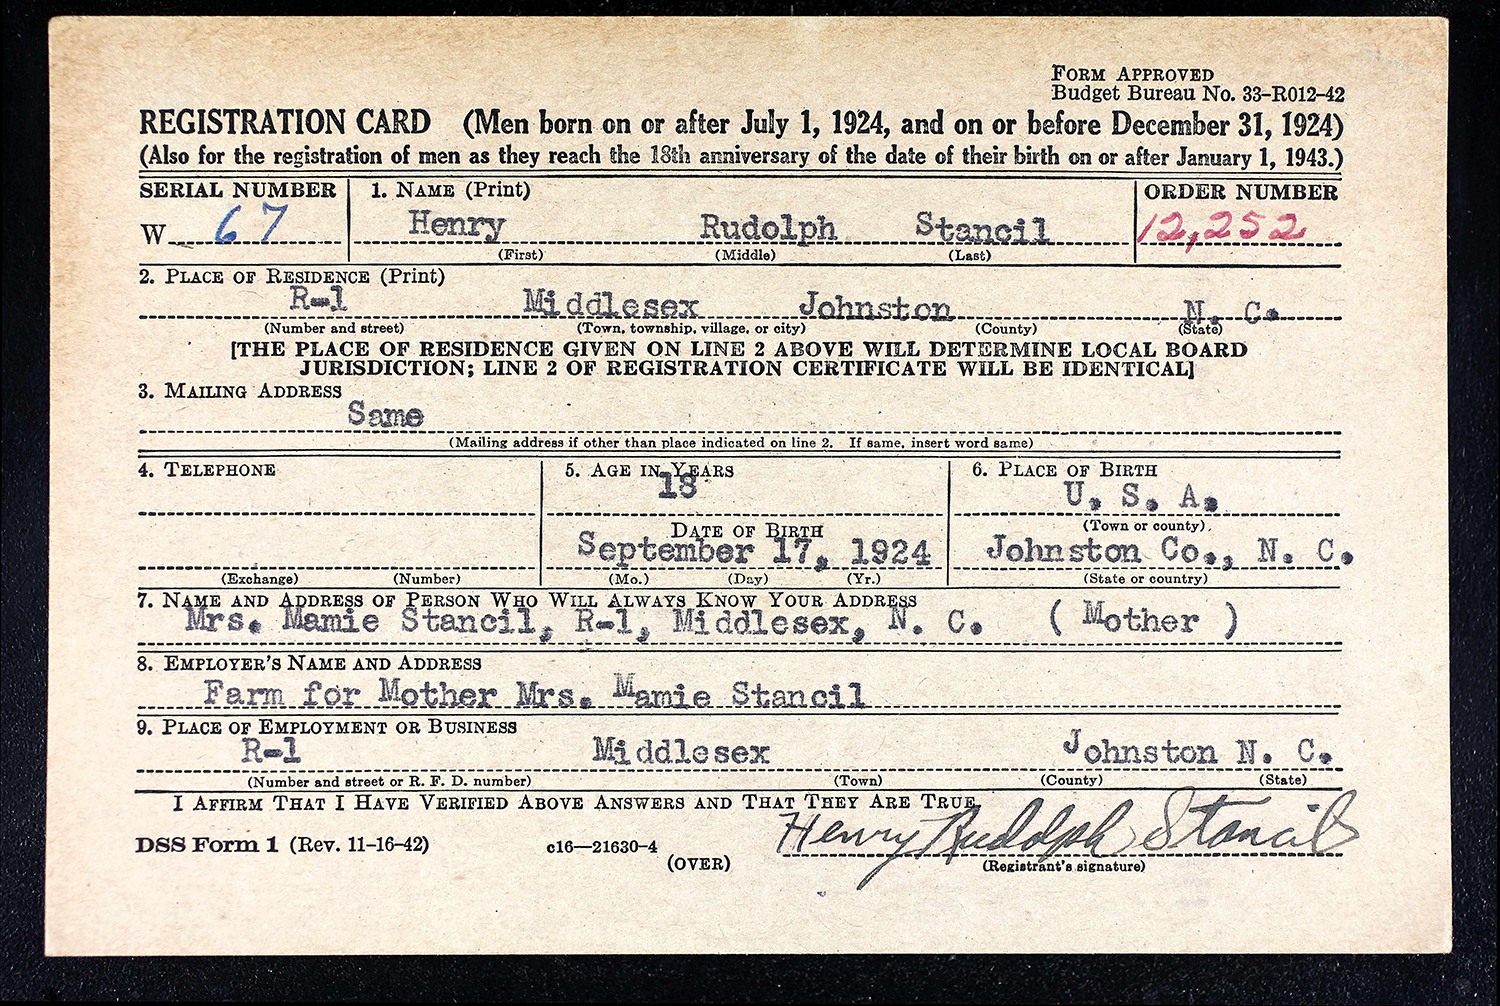 FORM APPROVED
Budget Bureau No. 33-R012-42
REGISTRATION CARD (Men born on or after July 1, 1924, and on or before December 31, 1924)
(Also for the registration of men as they reach the 18th anniversary of the date of their birth on or after January 1, 1943.)
SERIAL NUMBER 1. NAME (Print) ORDER NUMBER
W 67 Henry Rudolph Stancil 12,252
(First) (Middle) (Last)
2. PLACE OF RESIDENCE (Print)
R-1 Middlesex Johnston N. C.
(Number and street) (Town, township, village, or city) (County) (State)
[THE PLACE OF RESIDENCE GIVEN ON LINE 2 ABOVE WILL DETERMINE LOCAL BOARD
JURISDICTION; LINE 2 OF REGISTRATION CERTIFICATE WILL BE IDENTICAL]
3. MAILING ADDRESS
Same
(Mailing address if other than place indicated on line 2. If same, insert word same)
4. TELEPHONE 5. AGE IN YEARS 6. PLACE OF BIRTH
18 U. S. A.
DATE OF BIRTH (Town or county)
September 17, 1924 Johnston Co., N. C.
(Exchange) (Number) (Mo.) (Day) (Yr.) (State or country)
7. NAME AND ADDRESS OF PERSON WHO WILL ALWAYS KNOW YOUR ADDRESS
Mrs. Mamie Stancil, R-1, Middlesex, N. C. ( Mother )
8. EMPLOYER'S NAME AND ADDRESS
Farm for Mother Mrs. Mamie Stancil
9. PLACE OF EMPLOYMENT OR BUSINESS
R-1 Middlesex Johnston N. C.
(Number and street or R. F. D. number) (Town) (County) (State)
I AFFIRM THAT I HAVE VERIFIED ABOVE ANSWERS AND THAT THEY ARE TRUE.
DSS Form 1 (Rev. 11-16-42) c16—21630-4 Henry Rudolph Stancil
(OVER) (Registrant's signature)